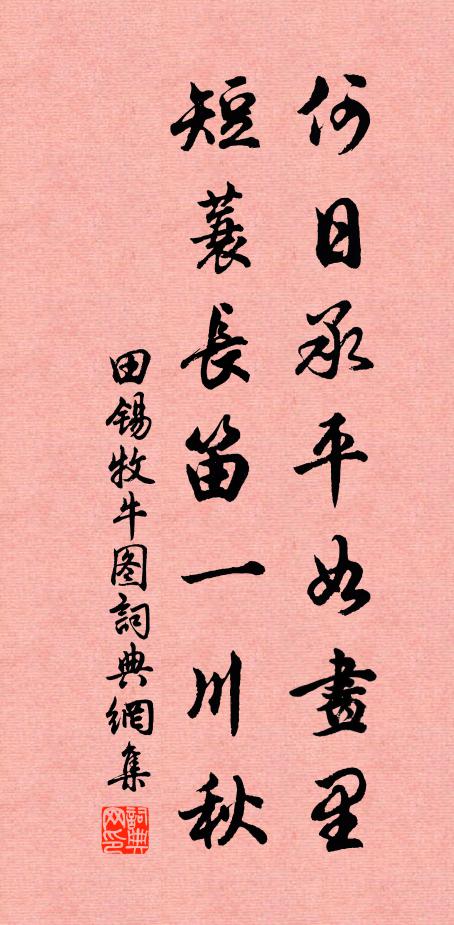 何日承平如畫里
短蓑長笛一川秋
田锡牧牛图詞典網集
詞典网印